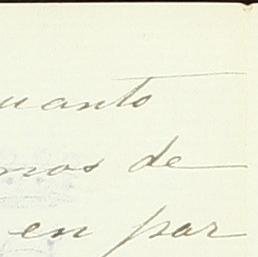 uanto
mos de
en par